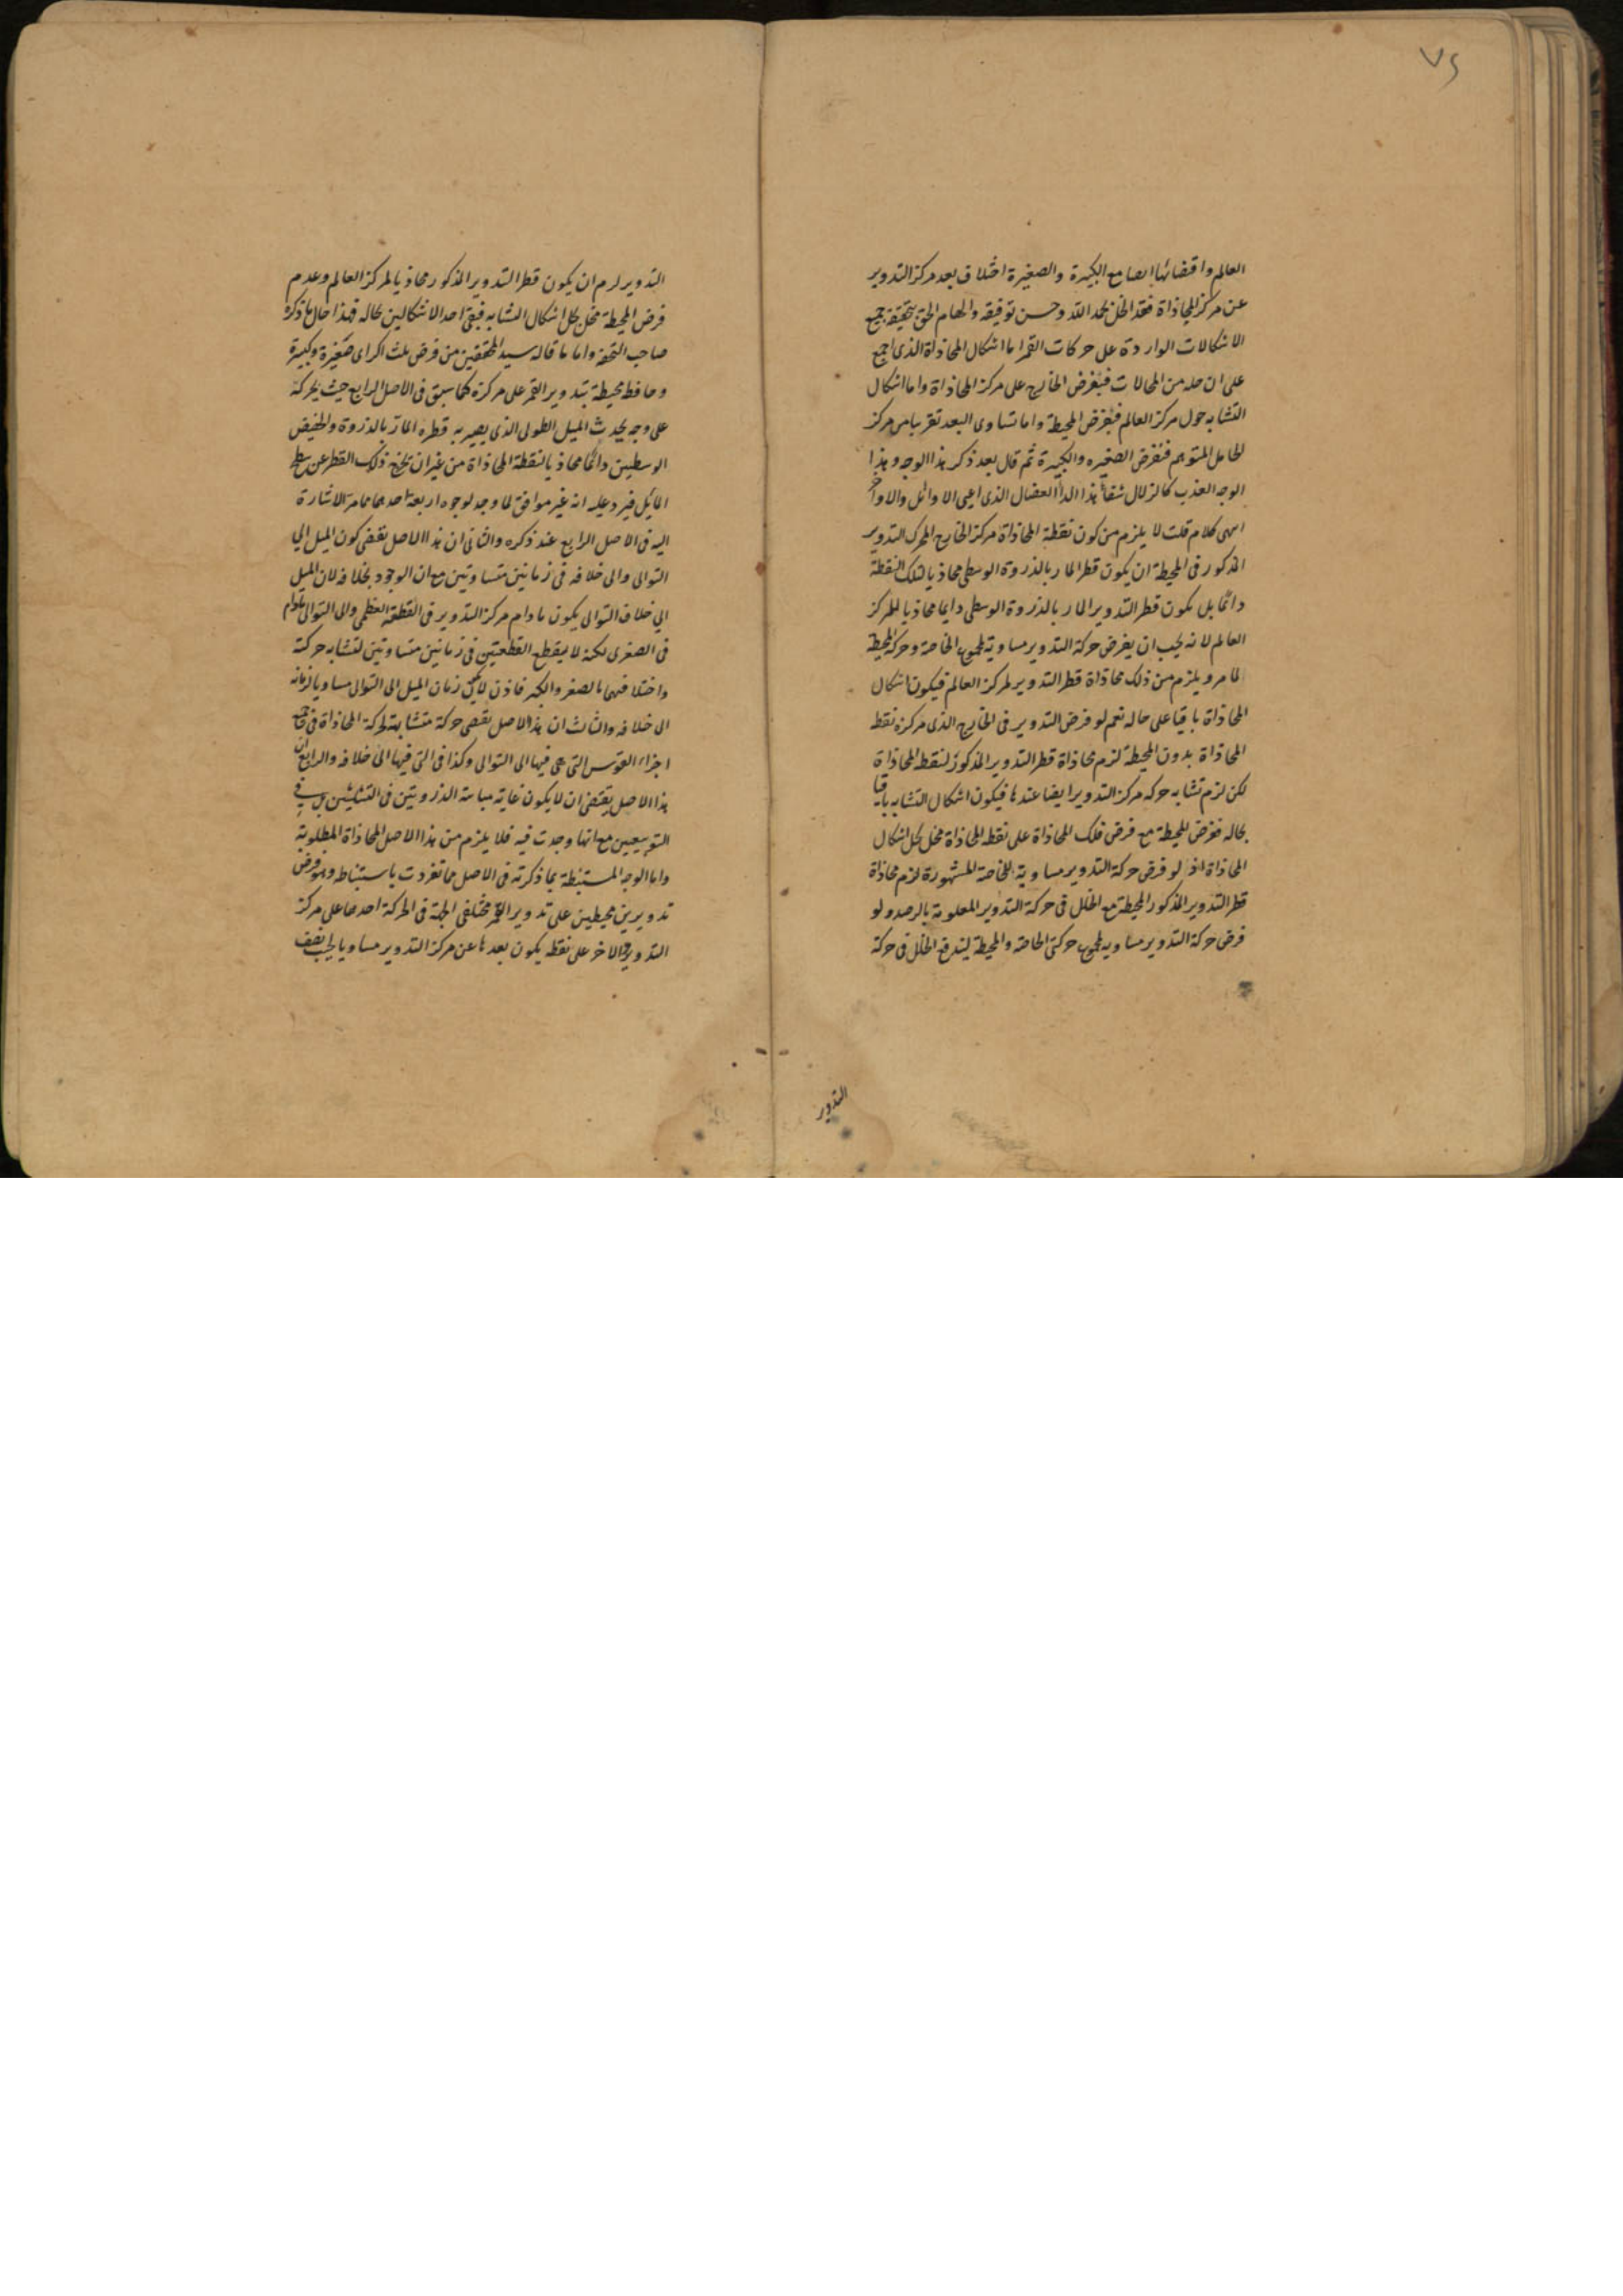 ٧٤
العالم واقتضائها ايضا مع الكبيرة والصغيرة اختلاف بعد مركز التدوير
عن مركز المحاذاة فقد انحل بحمد الله وحسن توفيقه والهام الحق بتحقيقه جميع
الاشكالات الواردة على حركات القمر اما اشكال المحاذاة الذى اجمع
على ان حله من المحالات فبفرض الخارج على مركز المحاذاة واما اشكال
التشابه حول مركز العالم فبفرض المحيطة واما تساوى البعد تقريبا من مركز
الحامل المتوهم فبفرض الصغيره والكبيرة ثم قال بعد ذكر هذا الوجه وهذا
الوجه العذب كالزلال شفاء هذا الداء العضال الذى اعيى الاوائل والاواخر
انتهى كلامه قلت لا يلزم من كون نقطة المحاذاة مركز الخارج المحرك التدوير
المذكور فى المحيطة ان يكون قطر المار بالذروة الوسطى محاذيا لتلك النقطة
دائما بل يكون قطر التدوير المار بالذروة الوسطى دايما محاذيا لمركز
العالم لانه يجب ان يفرض حركة التدوير مساوية لمجموع الخاصة وحركة المحيطة
لما مر ويلزم من ذلك محاذاة قطر التدوير لمركز العالم فيكون اشكال
المحاذاة باقيا على حاله نعم لو فرض التدوير فى الخارج الذى مركزه نقطة
المحاذاة بدون المحيطة لزم محاذاة قطر التدوير المذكور لنقطة المحاذاة
لكن لزم تشابه حركه مركز التدوير ايضا عندها فيكون اشكال التشابه باقيا
بحاله ففرض المحيطة مع فرض فلك المحاذاة على نقطة المحاذاة مخل بحل اشكال
المحاذاة اذ لو فرض حركة التدوير مساوية للخاصة المشهورة لزم محاذاة
قطر التدوير المذكور المحيطة مع الخلل فى حركة التدوير المعلومة بالرصد ولو
فرض حركة التدوير مساويه لمجموع حركتى الخاصة والمحيطة ليندفع الخلل فى حركة
التدوير
التدوير لزم ان يكون قطر التدوير المذكور محاذيا لمركز العالم وعدم
فرض المحيطة مخل بحل اشكال التشابه فيبقى احد الاشكالين بحاله فهذا حال ما ذكره
صاحب التحفه واما ما قاله سيد المحققين من فرض ثلث اكر اى صغيرة وكبيرة
وحافظ محيطة بتدوير القمر على مركزه كما سبق فى الاصل الرابع حيث يحركه
على وجه يحدث الميل الطولى الذى يصير به قطره المار بالذروة والحضيض
الوسطيين دائما محاذيا لنقطة المحاذاة من غير ان يخرج ذلك القطر عن سطح
المايل فيرد عليه انه غير موافق لما وجد لوجوه اربعة احدهما ما مر الاشارة
اليه فى الاصل الرابع عند ذكره والثانى ان هذا الاصل يقتضى كون الميل الى
التوالى والى خلافه فى زمانين متساويين مع ان الوجود بخلافه لان الميل
الى خلاف التوالى يكون مادام مركز التدوير فى القطعة العظمى والى التوالى مادام
فى الصغرى لكنه لا يقطع القطعتين فى زمانين متساويين لتشابه حركته
واختلافهما بالصغر والكبر فاذن لا يكون زمان الميل الى التوالى مساويا لزمانه
الى خلافه والثالث ان هذا الاصل يقتضى حركة متشابهة لحركة المحاذاة فى جميع
اجزاء القوس التى هى فيها الى التوالى وكذا فى التى فيها الى خلافه والرابع ان
هذا الاصل يقتضى ان لا يكون غاية مباينة الذروتين فى التثليثين بل فى
التربيعين مع انها وجدت فيه فلا يلزم من هذا الاصل المحاذاة المطلوبة
واما الوجه المستنبطة بما ذكرته فى الاصل مما تفردت باستنباطه وهو فرض
تدويرين محيطين على تدوير القمر مختلفى الجهة فى الحركة احدهما على مركز
التدوير والاخر على نقطة يكون بعدها عن مركز التدوير مساويا لجيب نصف